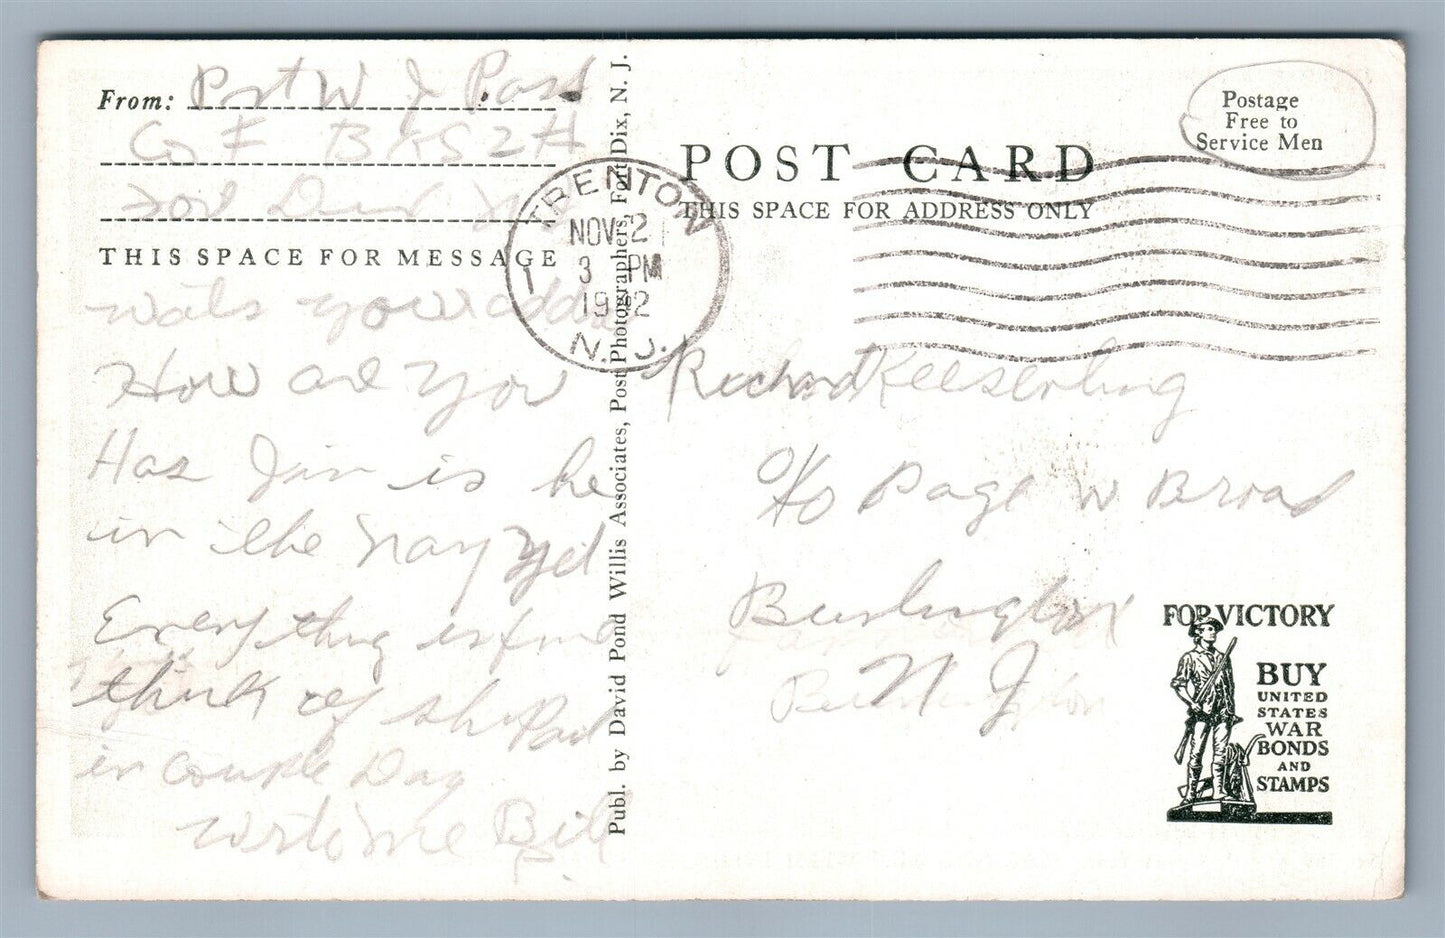 From: W J
Co F
THIS SPACE FOR MESSAGE
wats your
How are you
Has Jim is he
in the Navy yet
Every thing is fine
think of
in couple Day
me Bill
Publ. by David Pond Willis Associates, Post Photographers, Fort Dix, N. J.
TRENTON
NOV 2
3 PM
N. J.
Postage
Free to
Service Men
POST CARD
THIS SPACE FOR ADDRESS ONLY
Richard
c/o Page W Broad
Burlington
N J
FOR VICTORY
BUY
UNITED
STATES
WAR
BONDS
AND
STAMPS